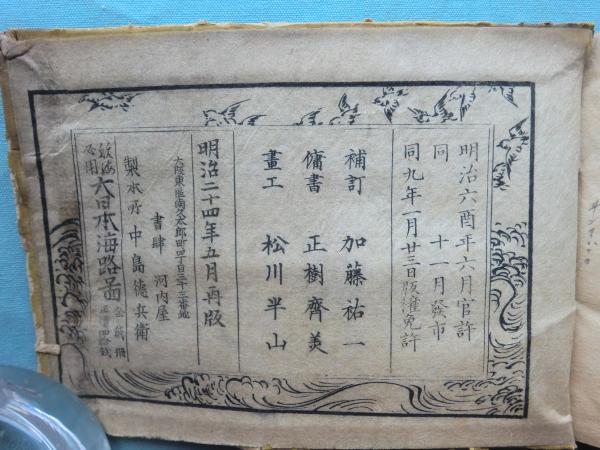 明治六酉年六月官許
同　十一月發市
同九年一月廿三日版權免許
補訂　加藤祐一
傭書　正樹齊美
畫工　松川半山
明治二十四年五月再版
大阪東區南久太郎町四丁目三十三番地
書肆　河内屋
製本所　中島德兵衛
航海必用　大日本海路圖　全貳冊